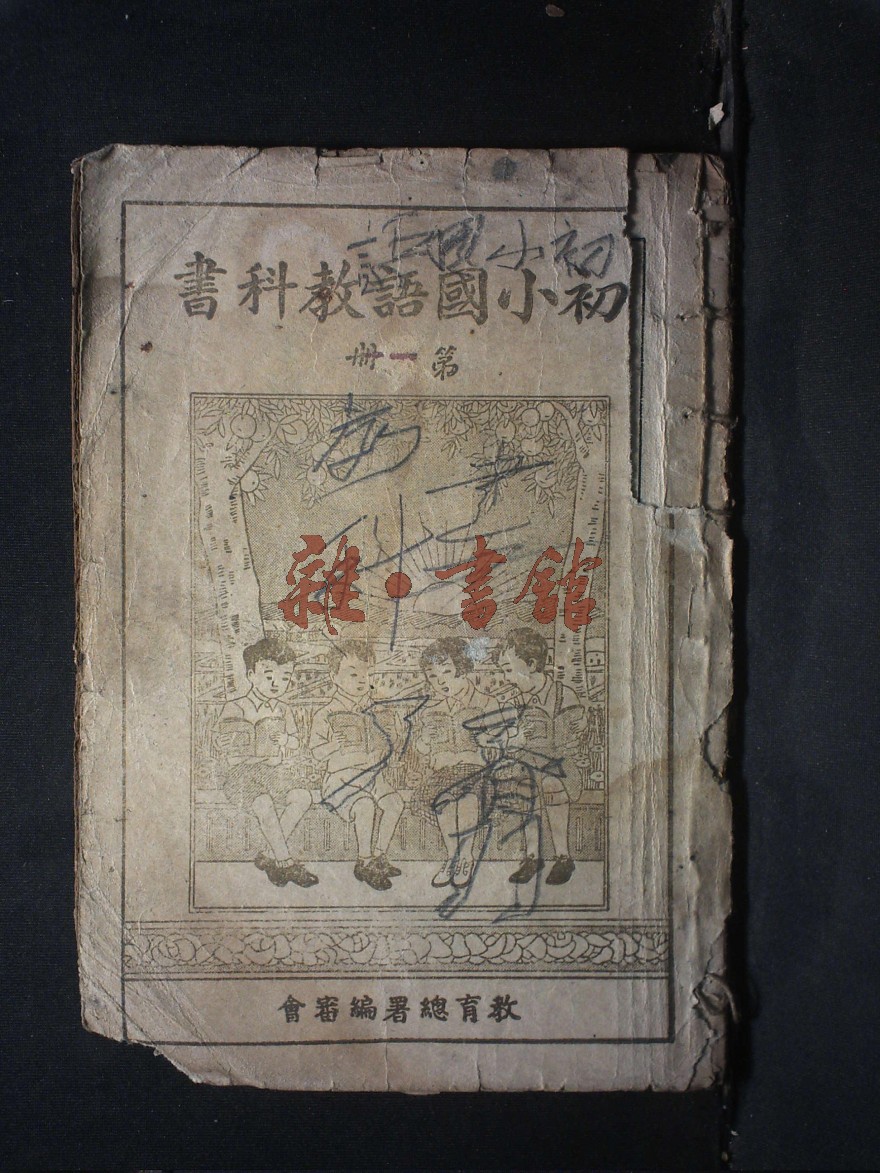 初小國語
初小國語教科書
第一冊
教
科
雜·書館
育
教育總署編審會